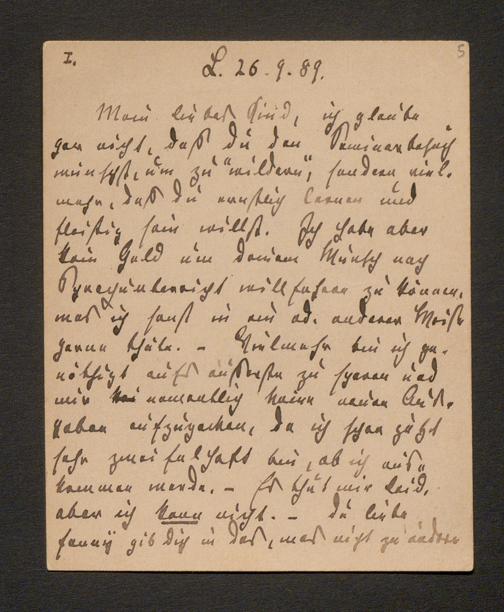 I.
5
L. 26.9.89.
Mein liebes Kind, ich glaube
gar nicht, daß du den Seminarbesuch
wünschst, um zu "wildern", sondern viel-
mehr, daß du ernstlich lernen und
fleißig sein willst. Ich habe aber
kein Geld um deinem Wunsch nach
Sprachunterricht willfahren zu können,
was ich sonst in ein od. anderer Weise
gerne thäte. – Vielmehr bin ich ge-
nöthigt aufs äußerste zu sparen und
mir namentlich keine neuen Aus-
gaben aufzupacken, da ich schon jetzt
sehr zweifelhaft bin, ob ich aus-
kommen werde. – Es thut mir leid,
aber ich kann nicht. – Du liebe
Fanny gib dich in das, was nicht zu ändern